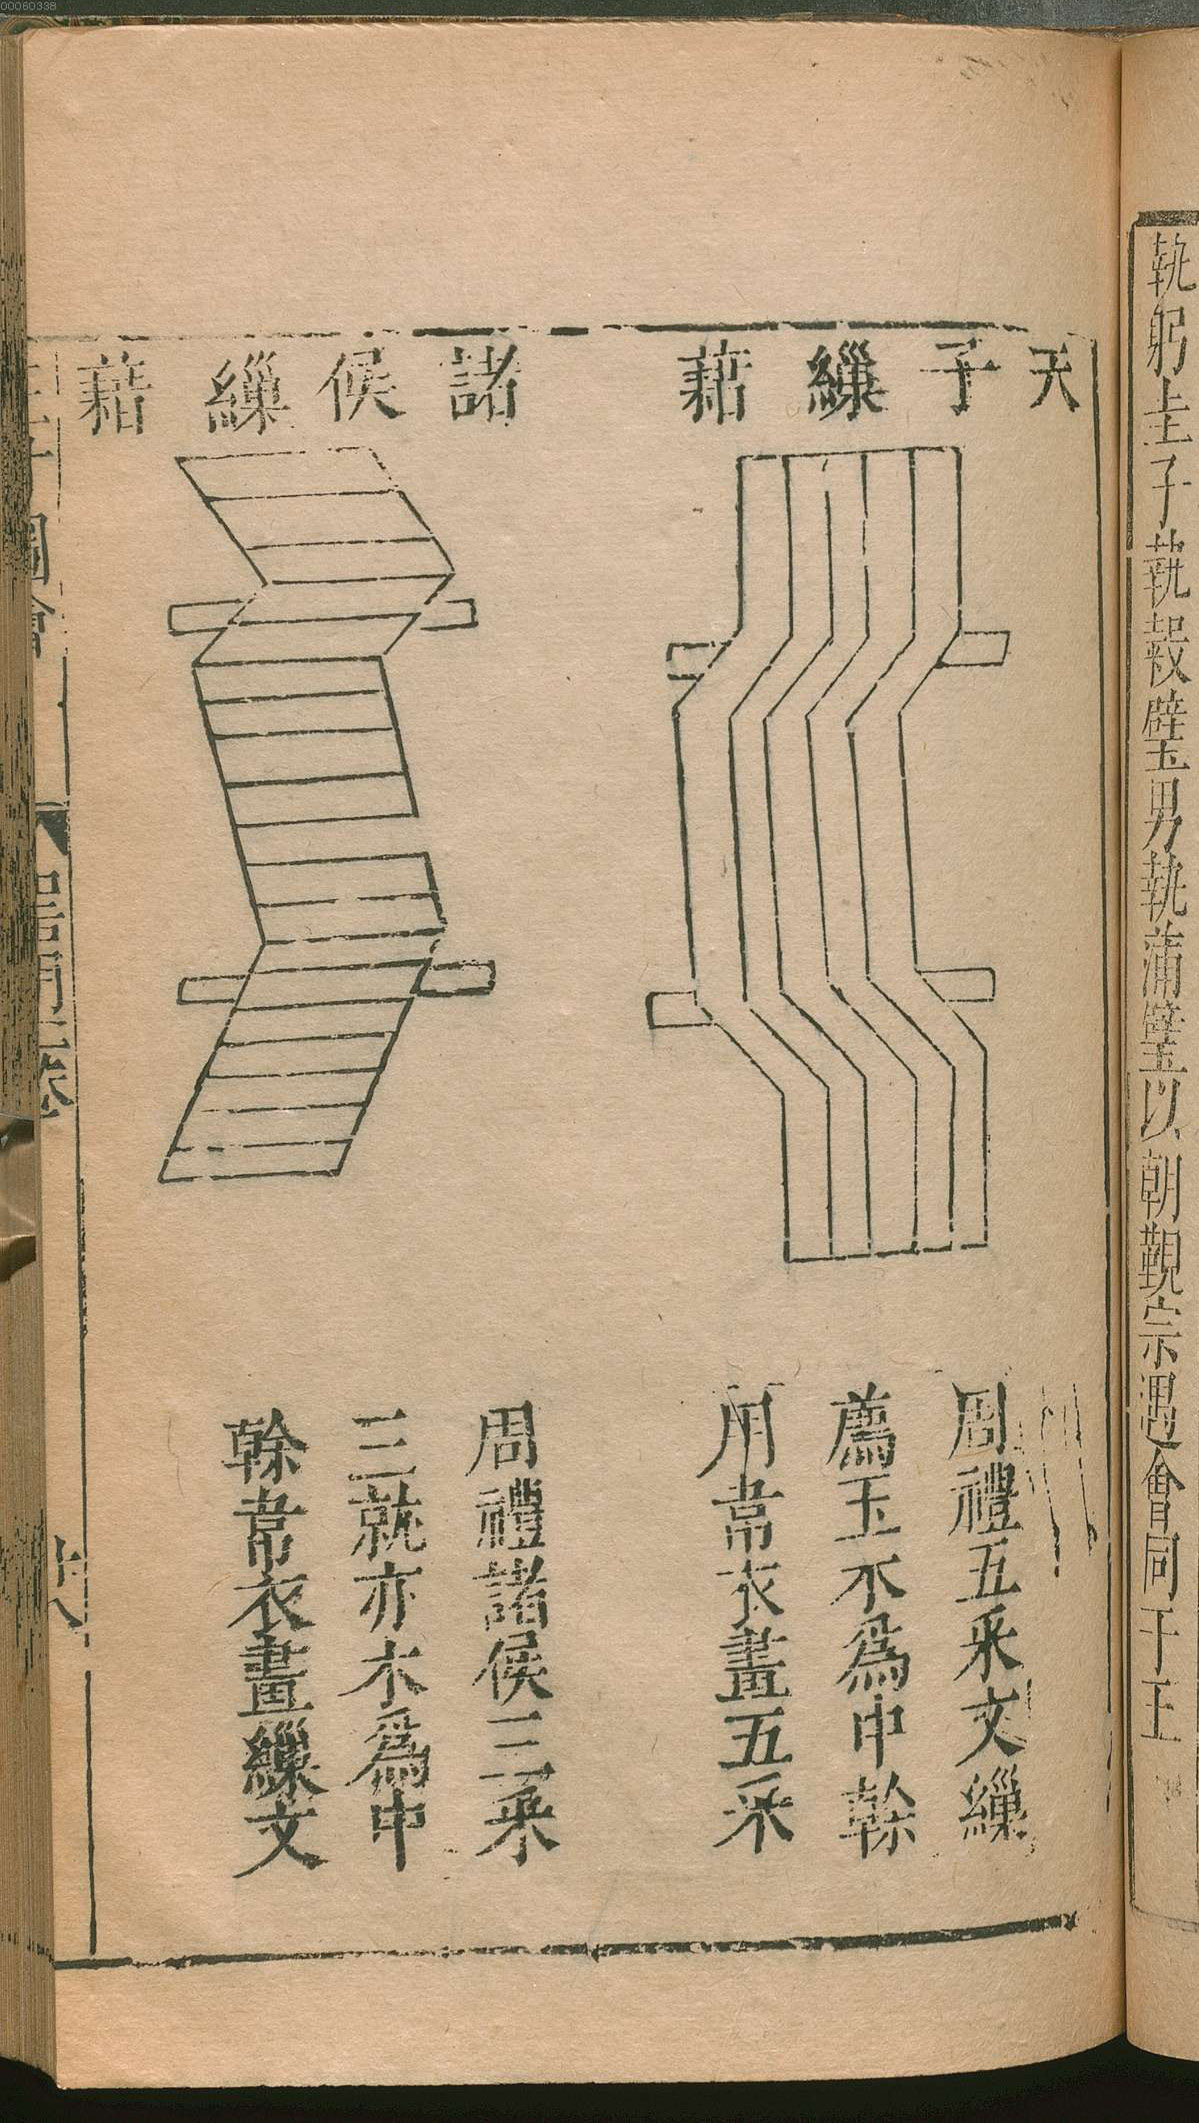 執躬圭子執穀璧男執蒲璧以朝覲宗遇會同于王
天子繅藉
周禮五采文繅
薦玉木爲中榦
用韋衣畫五采
諸侯繅藉
周禮諸侯三采
三就亦木爲中
榦韋衣畫繅文
器用三卷
00060338